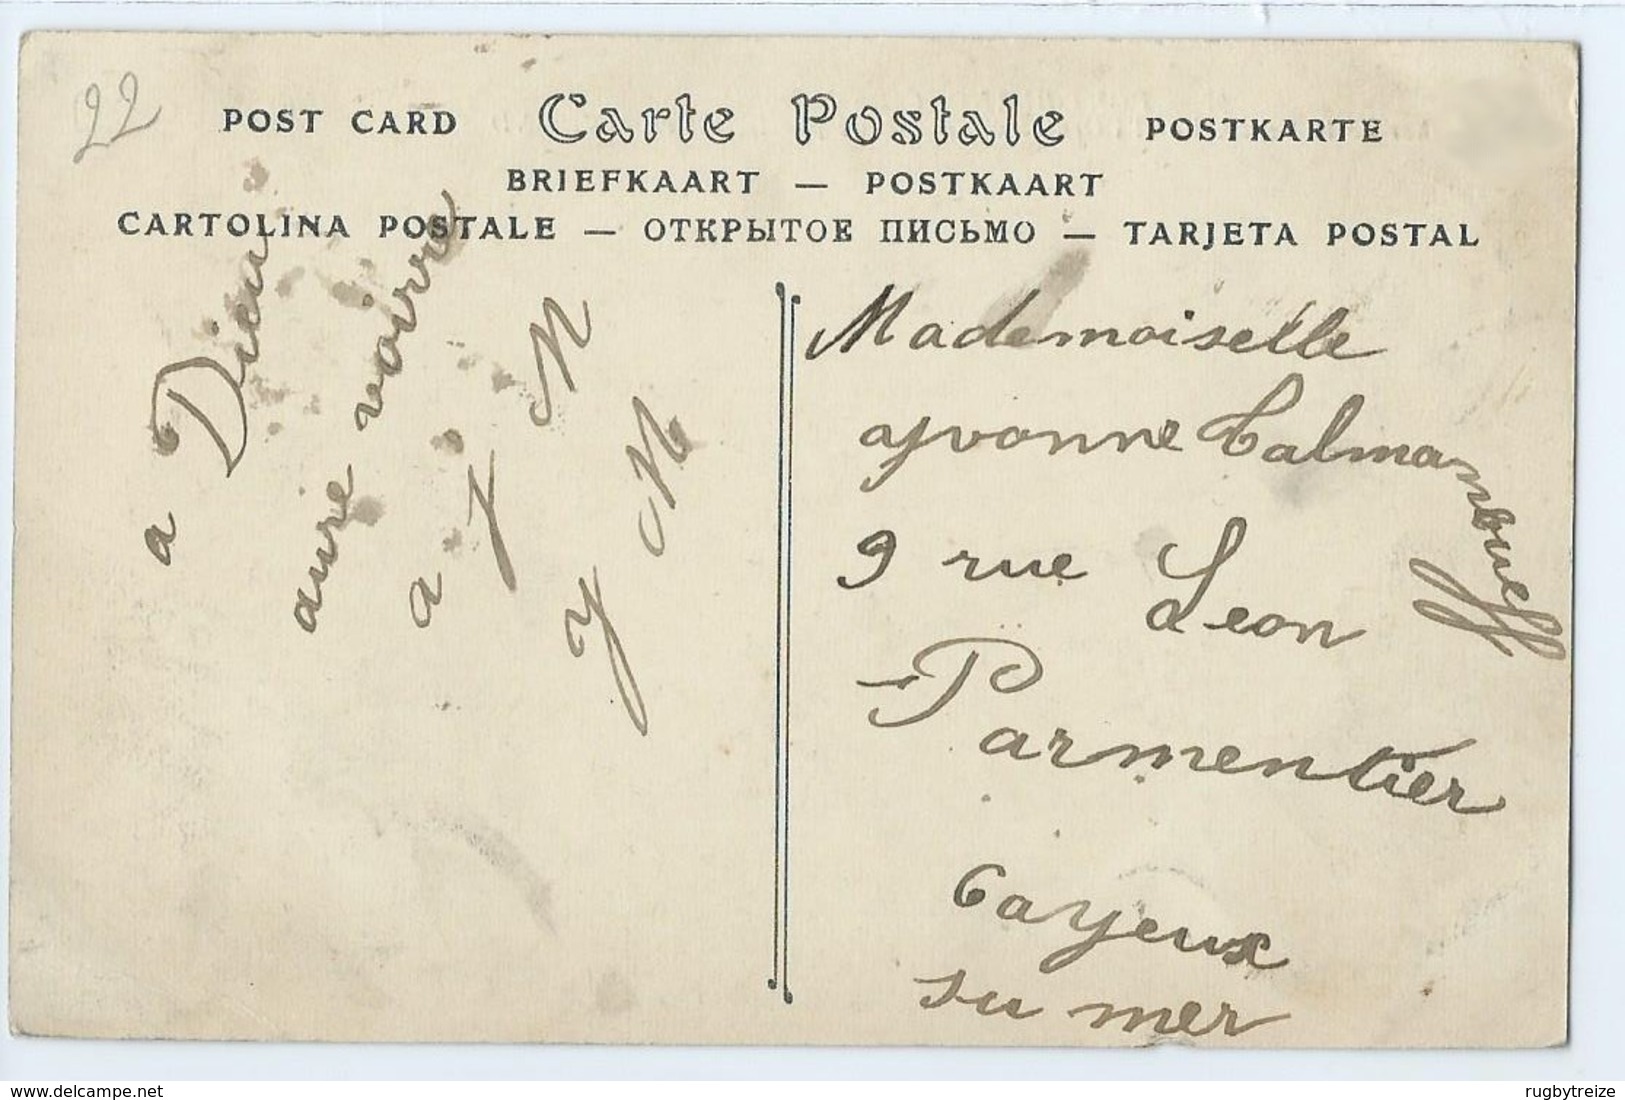 22
POST CARD Carte Postale POSTKARTE
BRIEFKAART — POSTKAART
CARTOLINA POSTALE — ОТКРЫТОЕ ПИСЬМО — TARJETA POSTAL
a Dieu
aure voirre
a y M
y M
Mademoiselle
yvonne Calmambueff
9 rue Leon
Parmentier
Cayeux
su mer
www.delcampe.net
rugbytreize